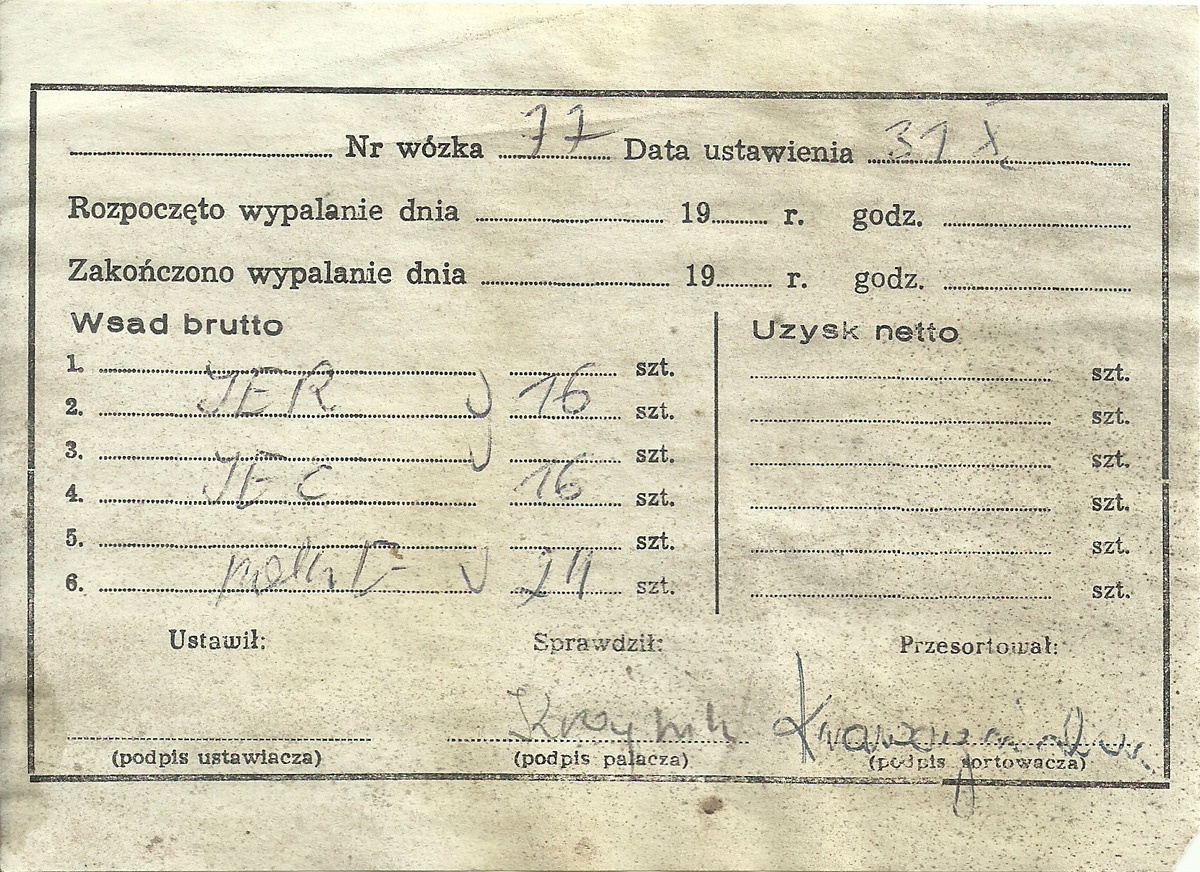 Nr wózka 77 Data ustawienia 31 X
Rozpoczęto wypalanie dnia 19 r. godz.
Zakończono wypalanie dnia 19 r. godz.
Wsad brutto
Uzysk netto
1. szt. szt.
2. JER 16 szt. szt.
3. szt. szt.
4. JEC 16 szt. szt.
5. szt. szt.
6. szt. szt.
Ustawił: Sprawdził: Przesortował:
(podpis ustawiacza) (podpis palacza) (podpis sortowacza)